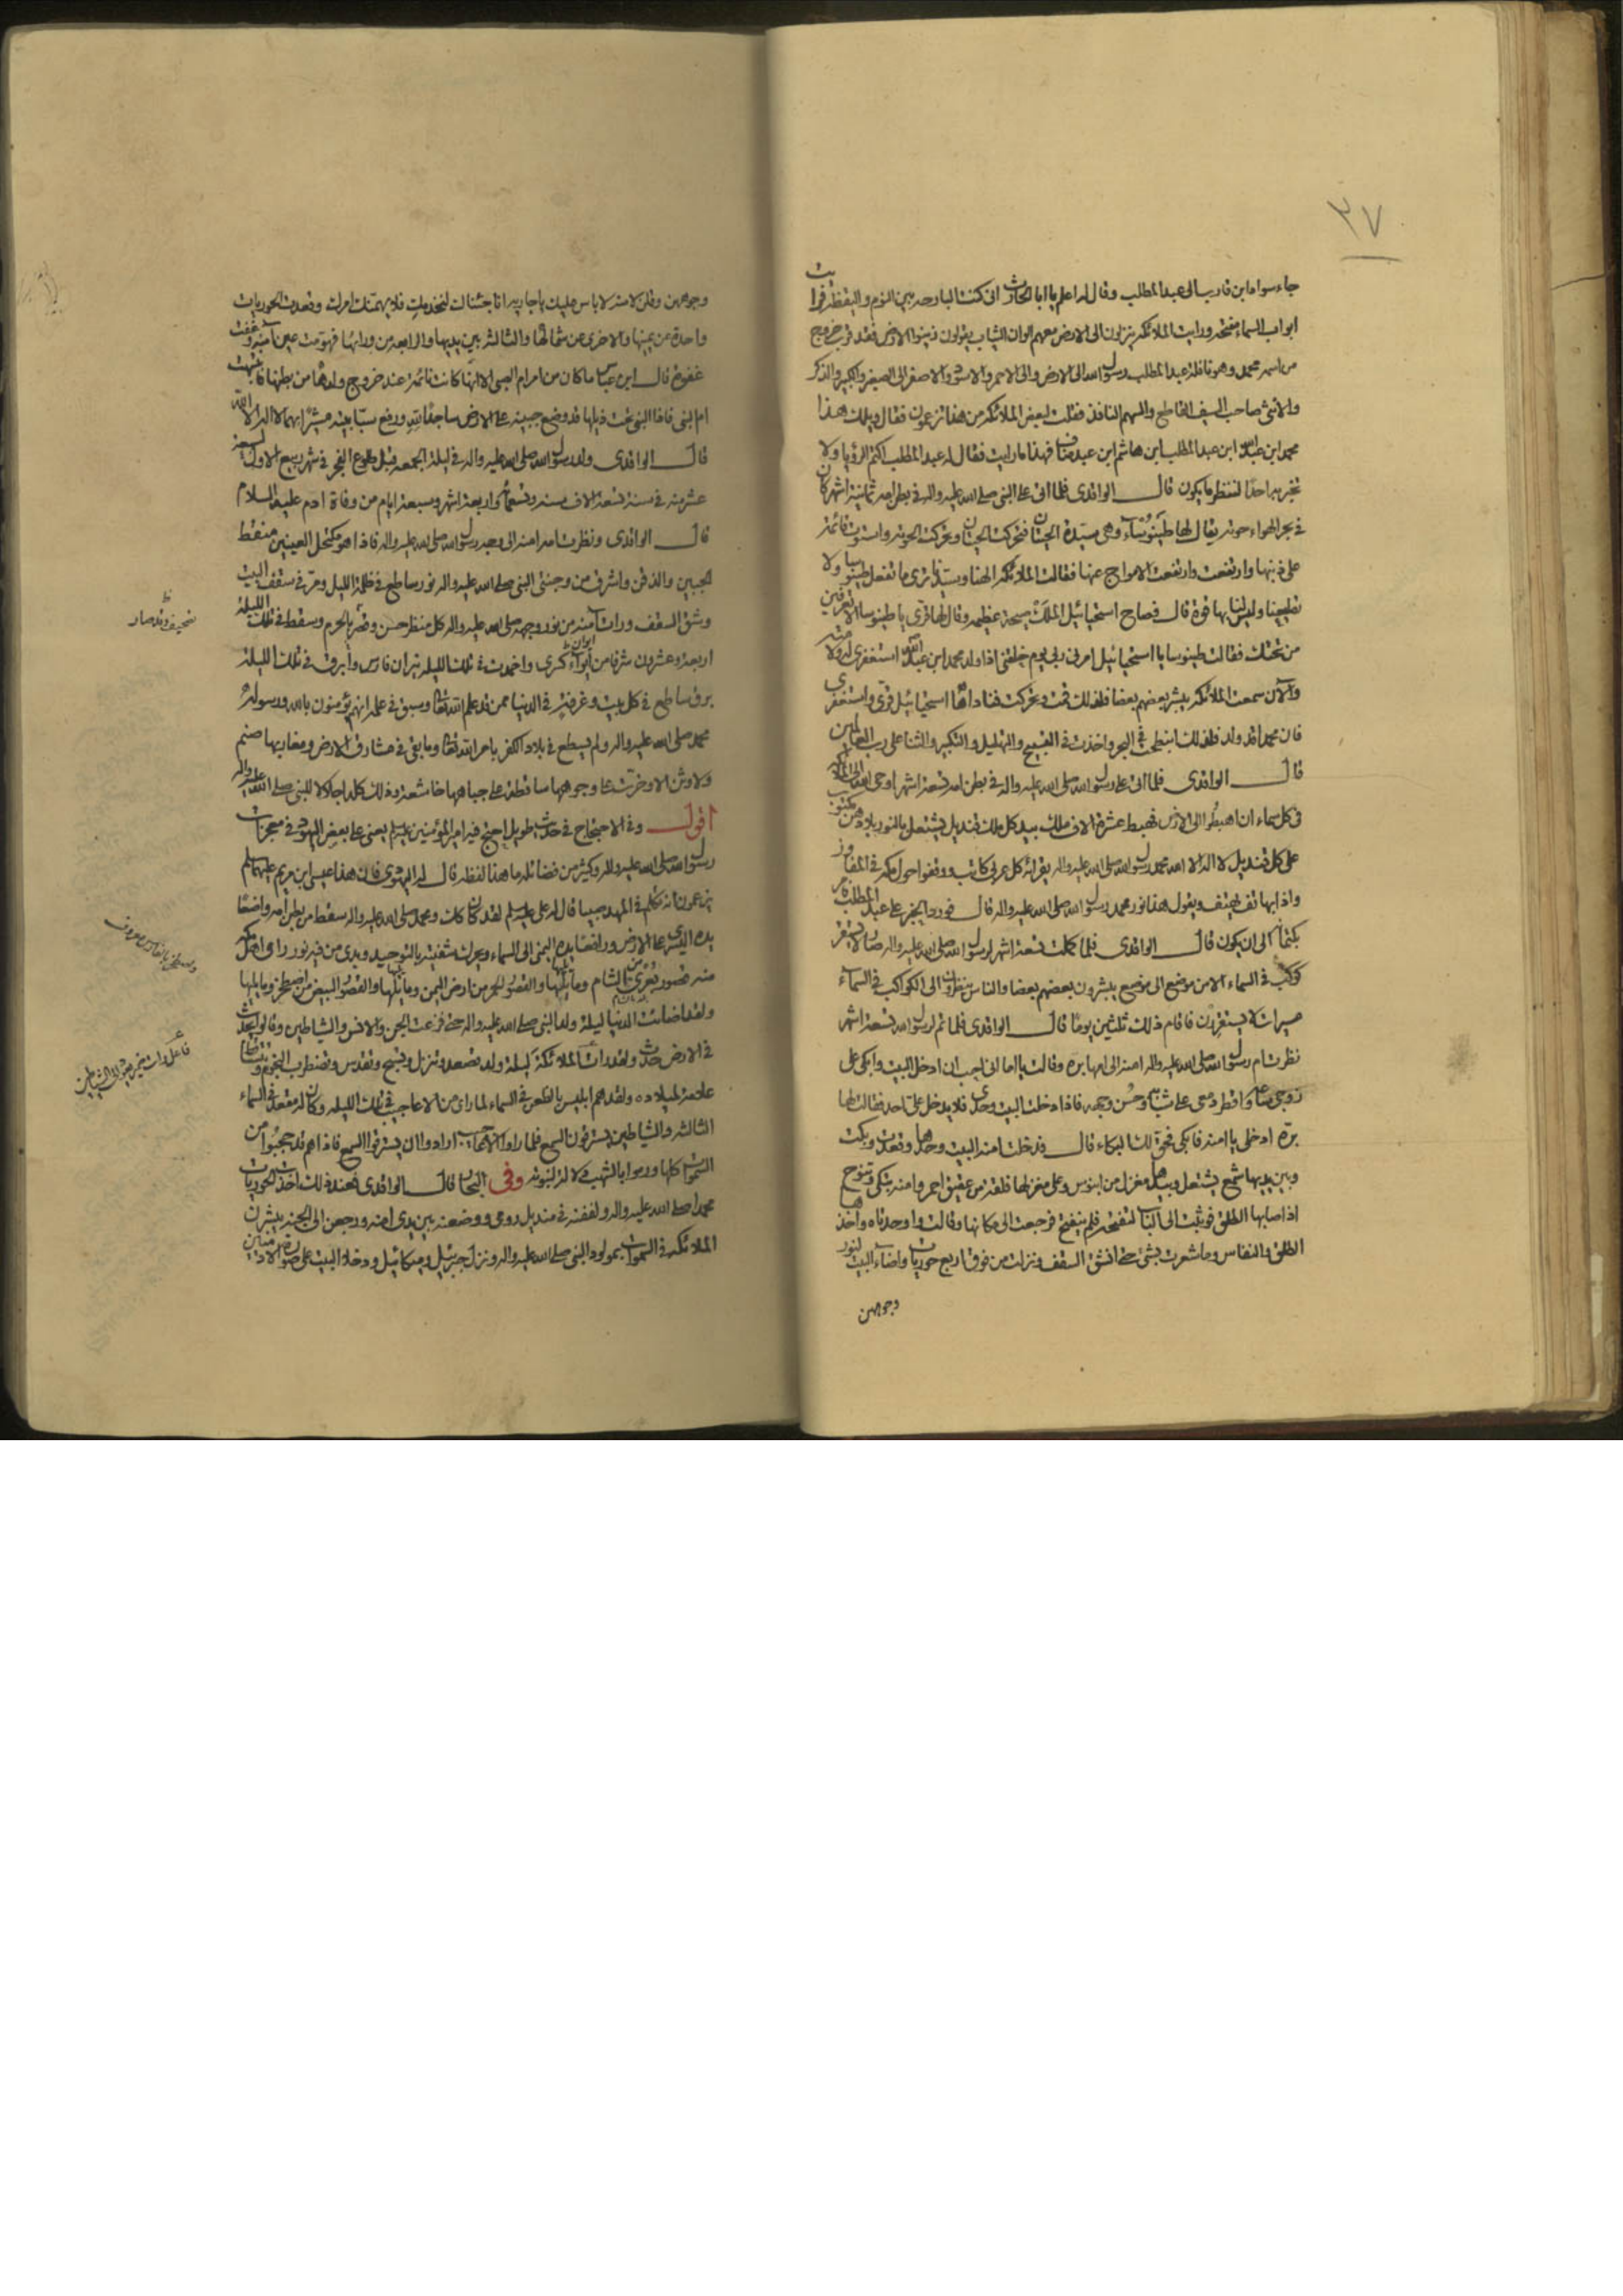 ٣٧
جاء سواد ابن قارب الى عبد المطلب وقال له اعلم يا ابا الحارث انى كنت البارحه بين النوم واليقظه فرايت
ابواب السماء مفتحه ورايت الملائكه ينزلون الى الارض معهم الوان الثياب يقولون زينوا الارض فقد قرب خروج
من اسمه محمد وهو نافلة عبد المطلب رسول الله الى الارض والى الاحمر والاسود والاصفر الى الصغير والكبير والذكر
والانثى صاحب السيف القاطع والسهم النافذ فقلت لبعض الملائكه من هذا تزعمون فقال ويلك هذا
محمد ابن عبد الله ابن عبد المطلب ابن هاشم ابن عبد مناف فهذا ما رايت فقال له عبد المطلب اكتم الرؤيا ولا
تخبر به احدا لننظر ما يكون قال الواقدى فلما اتى على النبى صلى الله عليه واله فى بطن امه ثمانية اشهر كان
فى بحر الهواء حوته يقال لها طينوساء وهى سيدة الحيتان فتحركت الحيتان وتحركت الحوته واستوت قائمة
على ذنبها وارتفعت وارتفعت الامواج عنها فقالت الملائكه الهنا وسيدنا ترى ما تفعل طينوسا ولا
تطيعنا وليس لنا بها قوة قال فصاح استحيائيل الملك صيحة عظيمه وقال لها قرى يا طينوسا الا تعرفين
من تحتك فقالت طينوسا يا استحيائيل امر ربى يوم خلقنى اذا ولد محمد ابن عبد الله استغفرى له ولامته
والان سمعت الملائكه يبشر بعضهم بعضا فلذلك قمت وتحركت فناداها استحيائيل قرى واستغفرى
فان محمدا قد ولد فلذلك انبطحت فى البحر واخذت فى التسبيح والتهليل والتكبير والثنا على رب العالمين
قال الواقدى فلما اتى على رسول الله صلى الله عليه واله فى بطن امه تسعة اشهر اوحى الله الى الملائكه
فى كل سماء ان اهبطوا الى الارض فهبط عشرة الاف ملك بيد كل ملك قنديل يشتعل بالنور بلا دهن مكتوب
على كل قنديل لا اله الا الله محمد رسول الله صلى الله عليه واله يقراه كل عربى كاتب ووقفوا حول مكه فى المفاوز
واذا بهاتف يهتف ويقول هذا نور محمد رسول الله صلى الله عليه واله قال فورد الخبر على عبد المطلب فامر
بكتمانه الى ان يكون قال الواقدى فلما كملت تسعة اشهر لرسول الله صلى الله عليه واله صار لا يستقر
كوكب فى السماء الا من موضع الى موضع يبشرون بعضهم بعضا والناس ينظرون الى الكواكب فى السماء
سيرات لا يستقرون فاقام ذلك ثلثين يوما قال الواقدى فلما تم لرسول الله تسعة اشهر
نظرت ام رسول الله صلى الله عليه واله امنه الى امها بره وقالت يا اماه انى احب ان ادخل البيت وابكى على
زوجى ساعة واقطر دمعى على شبابه وحسن وجهه فاذا دخلت البيت وحدى فلا يدخل على احد فقالت لها
بره ادخلى يا امنه فابكى فحق لك البكاء قال فدخلت امنه البيت وحدها وقعدت وبكت
وبين يديها شمع يشتعل وبيدها مغزل من ابنوس وعلى مغزلها فلقة من عقيق احمر وامنه تبكى وتنوح
اذ اصابها الطلق فوثبت الى الباب لتفتحه فلم ينفتح فرجعت الى مكانها وقالت واوحدتاه واخذها
الطلق والنفاس وما شعرت بشئ حتى انشق السقف ونزلت من فوق اربع حوريات واضاء البيت لنور
وجوههن
وجوههن وقلن لامنه لا باس عليك يا جاريه انا جئناك لنخدمك فلا يهمنك امرك وقعدت الحوريات
واحدة عن يمينها والاخرى عن شمالها والثالثه بين يديها والرابعه من ورائها فهومت عين آمنه وغفت
غفوة قال ابن عباس ما كان من امر ام النبى الا انها كانت نائمة عند خروج ولدها من بطنها فانتبهت
ام النبى فاذا النبى تحت ذيلها قد وضع جبينه على الارض ساجدا لله ورفع سبابتيه مشيرا بهما لا اله الا الله
قال الواقدى ولد رسول الله صلى الله عليه واله فى ليلة الجمعه قبل طلوع الفجر فى شهر ربيع الاول لسبعة
عشر منه فى سنة تسعة الاف سنه وتسعمائه واربعة اشهر وسبعة ايام من وفاة ادم عليه السلام
قال الواقدى ونظرت امه امنه الى وجه رسول الله صلى الله عليه واله فاذا هو مكتحل العينين منقط
الجبين والذقن واشرق من وجنتى النبى صلى الله عليه واله نور ساطع فى ظلمة الليل ومر فى سقف البيت
وشق السقف ورات آمنه من نور وجهه صلى الله عليه واله كل منظر حسن وقصر بالحرم وسقط فى تلك الليلة
اربعة وعشرون شرفا من ايوان كسرى واخمدت فى تلك الليله نيران فارس وابرق فى تلك الليلة
برق ساطع فى كل بيت وغرفة فى الدنيا ممن قد علم الله تعالى وسبق فى علمه انهم يؤمنون بالله ورسوله
محمد صلى الله عليه واله ولم يسطع فى بلاد الكفر بامر الله تعالى وما بقى فى مشارق الارض ومغاربها صنم
ولا وثن الا وخرت على وجوهها ساقطة على جباهها خاشعة وذلك كله اجلالا للنبى صلى الله عليه واله
اقول وفى الاحتجاج فى حديث طويل احتج فيه امير المؤمنين عليه السلم يعنى على بعض اليهود فى معجزات
رسول الله صلى الله عليه واله وكثير من فضائله ما هذا لفظه قال له اليهودى فان هذا عيسى ابن مريم عليهما السلم
يزعمون انه تكلم فى المهد صبيا قال له على عليه السلم لقد كان كذلك ومحمد صلى الله عليه واله سقط من بطن امه واضعا
يده اليسرى على الارض ورافعا يده اليمنى الى السماء ويحرك شفتيه بالتوحيد وبدى من فيه نور راى اهل مكه
منه قصور بصرى من الشام وما يليها والقصور الحمر من ارض اليمن وما يليها والقصور البيض من اصطخر وما يليها
ولقد اضائت الدنيا ليلة ولد النبى صلى الله عليه واله حتى فزعت الجن والانس والشياطين وقالوا يحدث
فى الارض حدث ولقد رات الملائكة ليلة ولد تصعد وتنزل وتسبح وتقدس وتضطرب النجوم وتتساقط
علامة لميلاده ولقد هم ابليس بالظعن فى السماء لما راى من الاعاجيب فى تلك الليله وكان له مقعد فى السماء
الثالثه والشياطين يسترقون السمع فلما راوا الاعاجيب ارادوا ان يسترقوا السمع فاذا هم قد حجبوا من
السموات كلها ورموا بالشهب دلالة لنبوته وفى البحار قال الواقدى فعند ذلك اخذت الحوريات
محمدا صلى الله عليه واله ولففنه فى منديل رومى ووضعنه بين يدى امنه ورجعن الى الجنه يبشرن
الملائكه فى السموات بمولود النبى صلى الله عليه واله ونزل جبرئيل وميكائيل ودخلا البيت على صورة الادميين